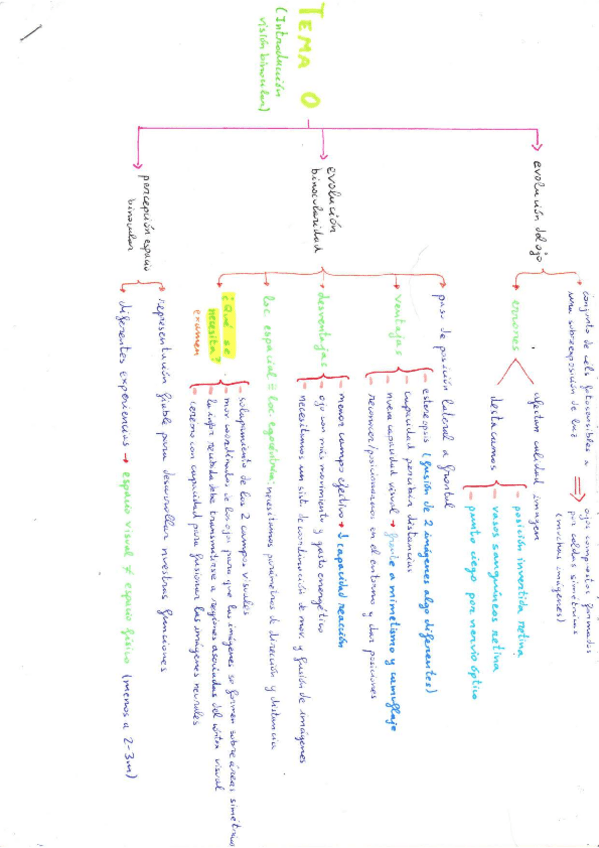 TEMA 0
(Introducción
visión binocular)
evolución del ojo
conjunto de céls fotosensibles a
una sobreexposición de luz
ojos compuestos formados
por celdas simétricas
(muchas imágenes)
errores
afectan calidad imagen
destacamos
- posición invertida retina
- vasos sanguíneos retina
- punto ciego por nervio óptico
evolución
binocularidad
paso de posición lateral a frontal
ventajas
- estereopsis (fusión de 2 imágenes algo diferentes)
- capacidad percibir distancias
- nueva capacidad visual → frente a mimetismo y camuflaje
- reconocer/posicionarnos en el entorno y dar posiciones
desventajas
- menor campo efectivo → ↓ capacidad reacción
- ojo con más movimiento y gasto energético
- necesitamos un sist. de coordinación de mov. y fusión de imágenes
loc. espacial = loc. egocéntrica; necesitamos parámetros de dirección y distancia
¿Qué se
necesita?
examen
- solapamiento de los 2 campos visuales
- mov. coordinados de los ojos para que las imágenes se formen sobre áreas simétricas
- la infor. recibida debe transmitirse a regiones asociadas del córtex visual
- cerebro con capacidad para fusionar las imágenes neurales
percepción espacio
binocular
representación fiable para desarrollar nuestras funciones
diferentes experiencias → espacio visual ≠ espacio físico (menos a 2-3m)